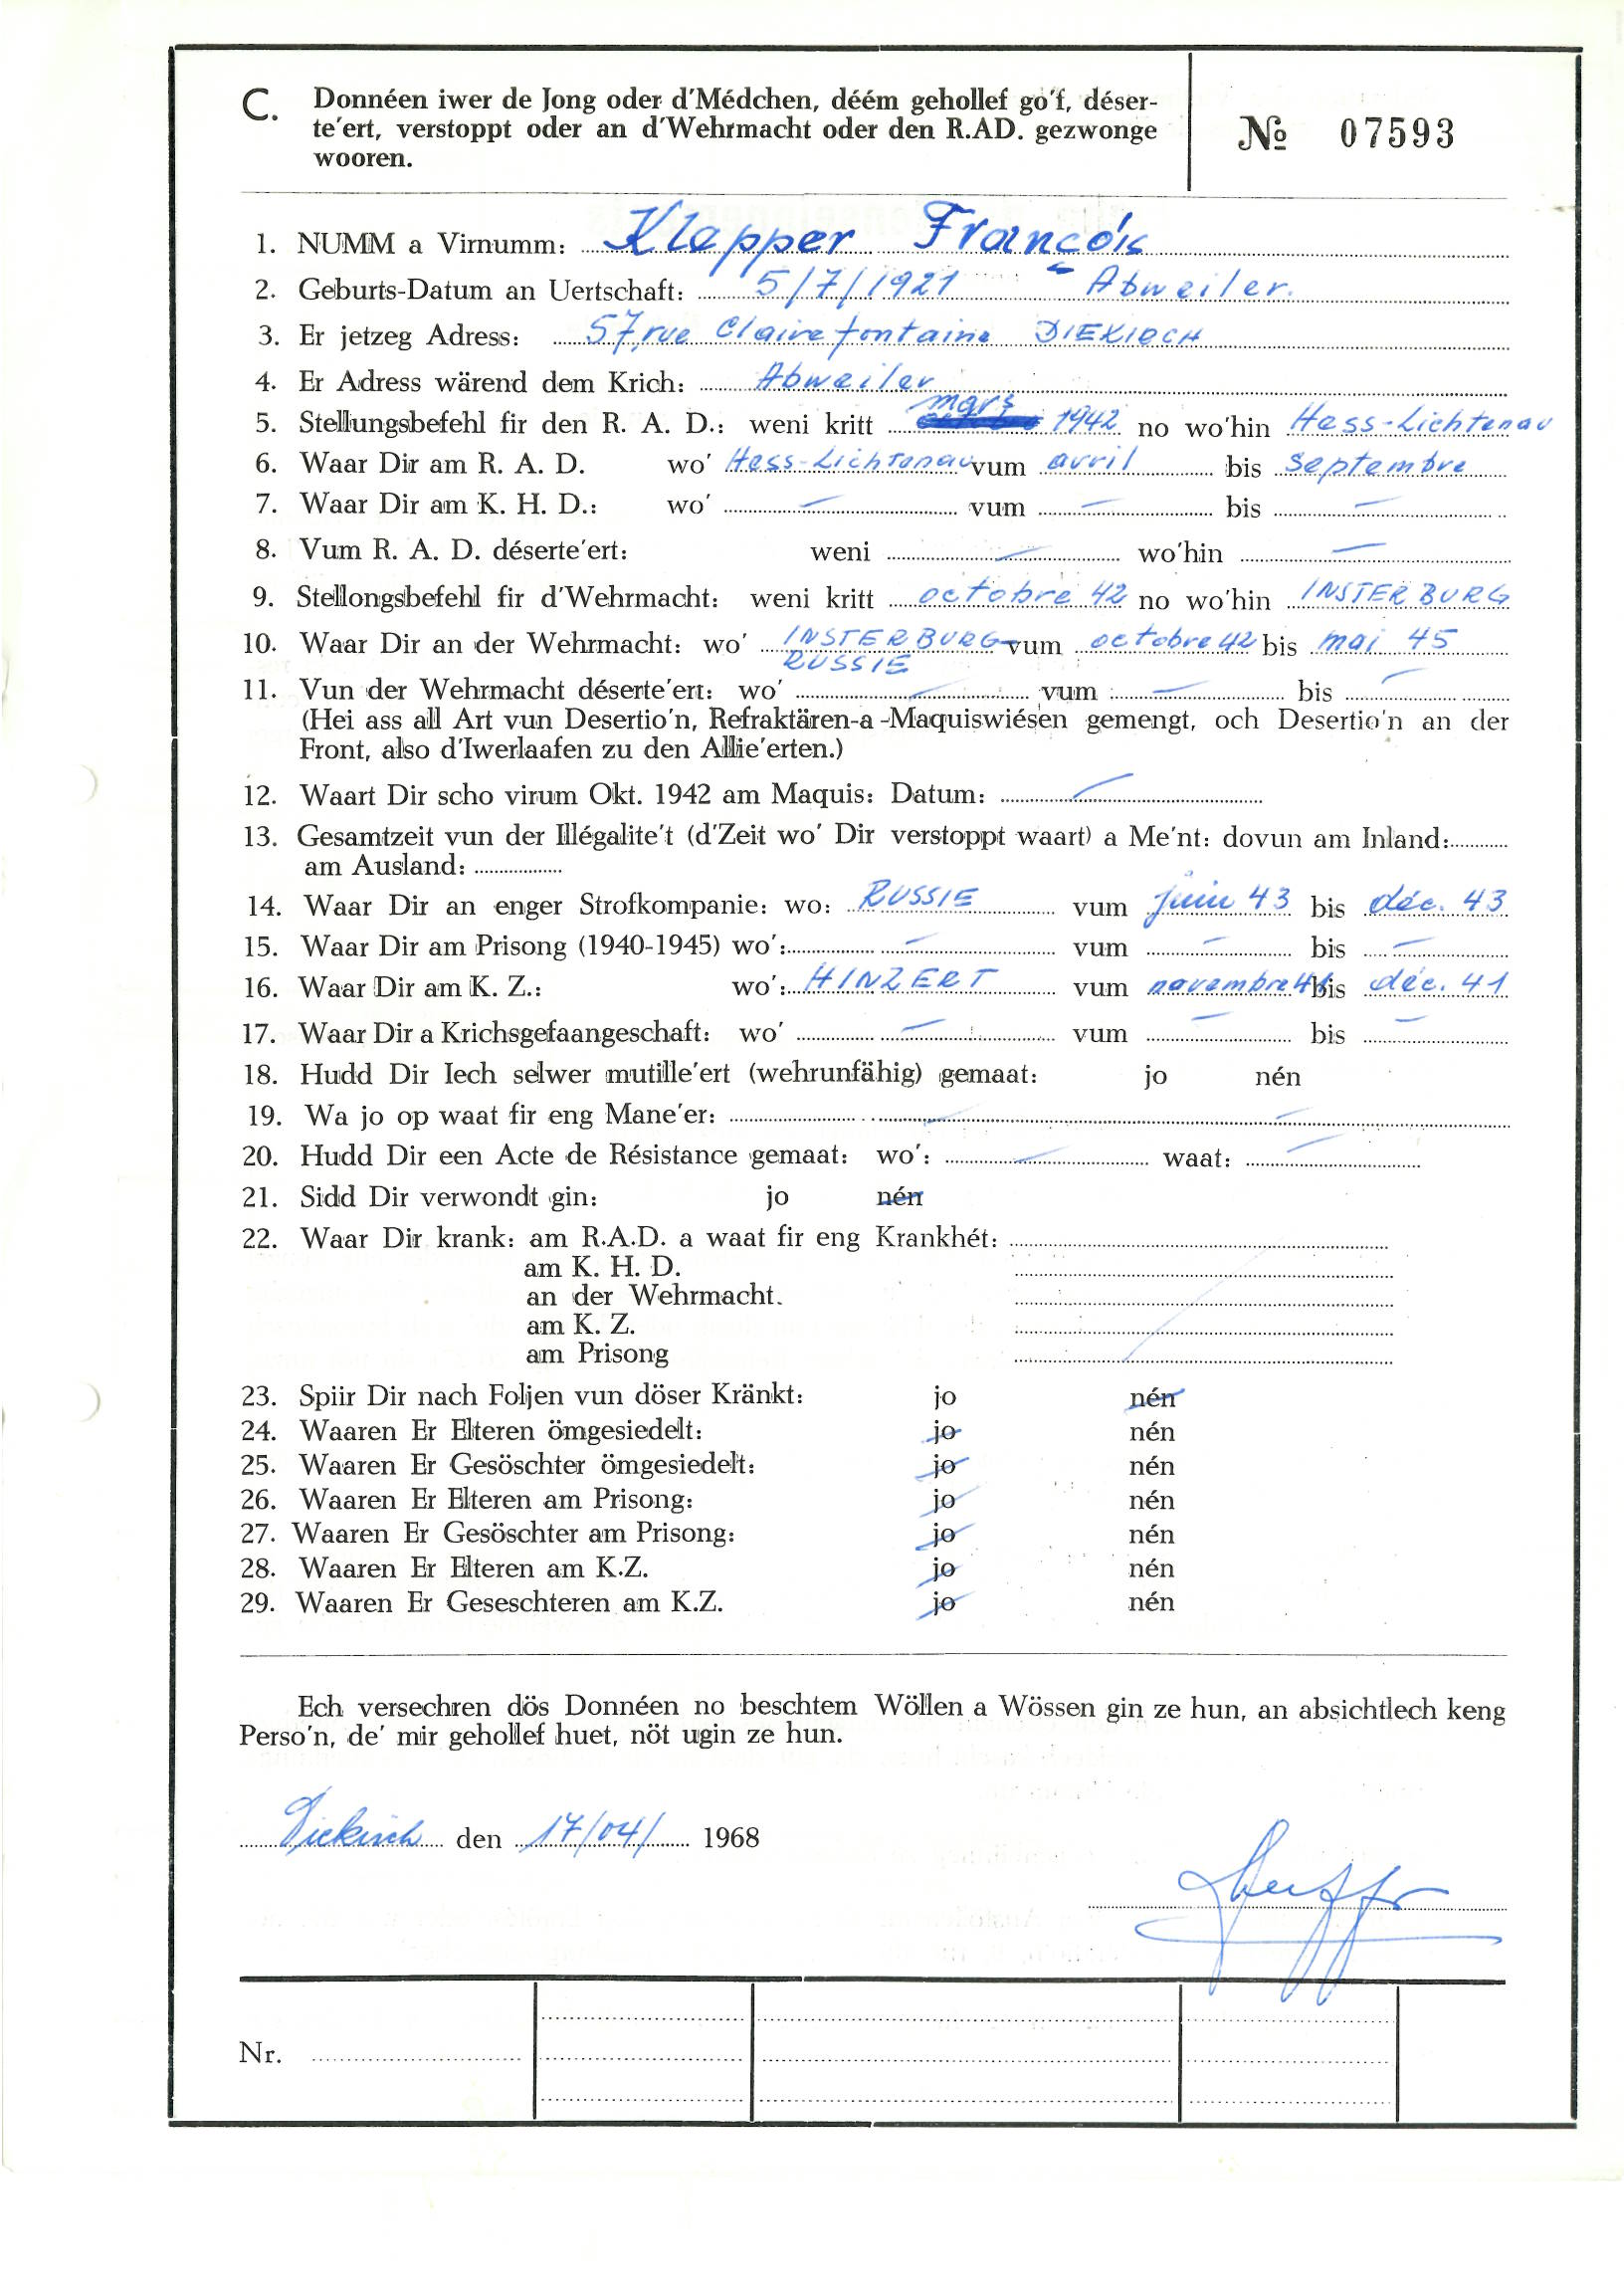 C. Donnéen iwer de Jong oder d'Médchen, déém gehollef go'f, déser-
te'ert, verstoppt oder an d'Wehrmacht oder den R.AD. gezwonge
wooren.
№ 07593
1. NUMM a Virnumm: Klepper François
2. Geburts-Datum an Uertschaft: 5/7/1921 Abweiler.
3. Er jetzeg Adress: 57, rue Clairefontaine DIEKIRCH
4. Er Adress wärend dem Krich: Abweiler
5. Stellungsbefehl fir den R. A. D.: weni kritt mars 1942 no wo'hin Hess-Lichtenau
6. Waar Dir am R. A. D. wo' Hess-Lichtenau vum avril bis septembre
7. Waar Dir am K. H. D.: wo' — vum — bis —
8. Vum R. A. D. déserte'ert: weni — wo'hin —
9. Stellongsbefehl fir d'Wehrmacht: weni kritt octobre 42 no wo'hin INSTERBURG
10. Waar Dir an der Wehrmacht: wo' INSTERBURG- vum octobre 42 bis mai 45
RUSSIE
11. Vun der Wehrmacht déserte'ert: wo' — vum — bis —
(Hei ass all Art vun Desertio'n, Refraktären-a-Maquiswiésen gemengt, och Desertio'n an der
Front, also d'Iwerlaafen zu den Allie'erten.)
12. Waart Dir scho virum Okt. 1942 am Maquis: Datum: —
13. Gesamtzeit vun der Illégalite't (d'Zeit wo' Dir verstoppt waart) a Me'nt: dovun am Inland:
am Ausland:
14. Waar Dir an enger Strofkompanie: wo: RUSSIE vum juin 43 bis déc. 43
15. Waar Dir am Prisong (1940-1945) wo': — vum — bis —
16. Waar Dir am K. Z.: wo': HINZERT vum novembre 41 bis déc. 41
17. Waar Dir a Krichsgefaangeschaft: wo' — vum — bis —
18. Hudd Dir Iech selwer mutille'ert (wehrunfähig) gemaat: jo nén
19. Wa jo op waat fir eng Mane'er: — —
20. Hudd Dir een Acte de Résistance gemaat: wo': — waat: —
21. Sidd Dir verwondt gin: jo nén
22. Waar Dir krank: am R.A.D. a waat fir eng Krankhét:
am K. H. D.
an der Wehrmacht.
am K. Z.
am Prisong
23. Spiir Dir nach Foljen vun döser Kränkt: jo nén
24. Waaren Er Elteren ömgesiedelt: jo nén
25. Waaren Er Gesöschter ömgesiedelt: jo nén
26. Waaren Er Elteren am Prisong: jo nén
27. Waaren Er Gesöschter am Prisong: jo nén
28. Waaren Er Elteren am K.Z. jo nén
29. Waaren Er Geseschteren am K.Z. jo nén
Ech versechren dös Donnéen no beschtem Wöllen a Wössen gin ze hun, an absichtlech keng
Perso'n, de' mir gehollef huet, nöt ugin ze hun.
Diekirch den 17/04/ 1968
Nr.